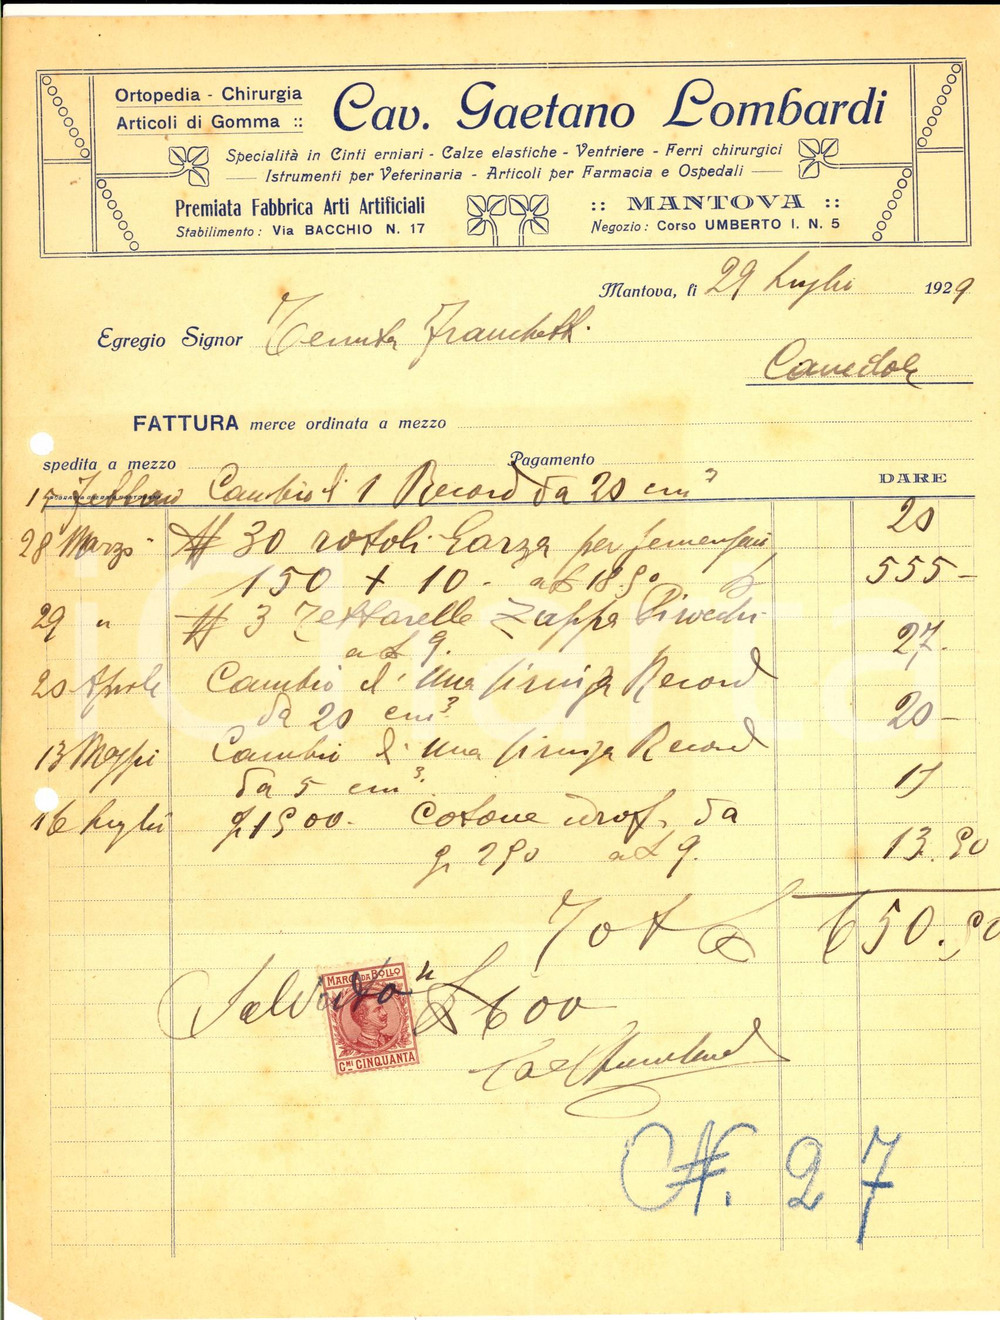 Ortopedia - Chirurgia
Articoli di Gomma ::
Cav. Gaetano Lombardi
Specialità in Cinti erniari - Calze elastiche - Ventriere - Ferri chirurgici
Istrumenti per Veterinaria - Articoli per Farmacia e Ospedali
Premiata Fabbrica Arti Artificiali
Stabilimento: Via BACCHIO N. 17
:: MANTOVA ::
Negozio: Corso UMBERTO I. N. 5
Mantova, li 29 Luglio 1929
Egregio Signor Tenuta Franchetti
Canedole
FATTURA merce ordinata a mezzo
spedita a mezzo Pagamento
DARE
Febbraio Cambio di 1 Record da 20 cm³ 20
28 Marzo N 30 rotoli Garza per
150 + 10 - a £ 18.50 555 -
29 " N 3 Zappa 
a £ 9. 27.
20 Aprile Cambio d'una siringa Record
da 20 cm³ 20 -
13 Maggio Cambio d'una siringa Record
da 5 cm³. 15
16 Luglio g 1500 - Cotone idrof. da
gr 250 a £ 9. 13.50
Tot £ 650.50
Saldato £ 600
MARCA DA BOLLO
CMI CINQUANTA
N. 27
iCharta